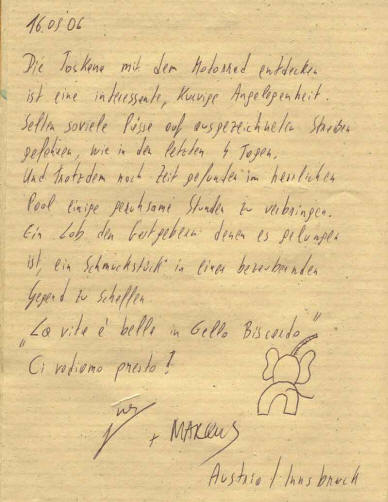 16.09.06
Die Toskana mit dem Motorrad entdecken
ist eine interessante, kurvige Angelegenheit.
Selten soviele Pässe auf ausgezeichneten Straßen
gefahren, wie in den letzten 4 Tagen.
Und trotzdem noch Zeit gefunden im herrlichen
Pool einige geruhsame Stunden zu verbringen.
Ein Lob den Gastgebern denen es gelungen
ist, ein "Schmuckstück" in einer bezaubernden
Gegend zu schaffen
„La vita é bella in Gello Biscardo"
Ci vediamo presto!
+ MARKUS
Austria / Innsbruck